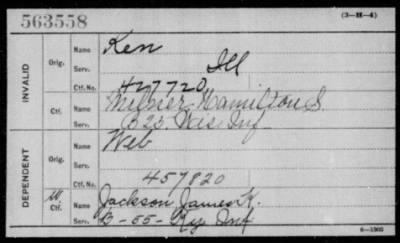 563558
(3-H-4)
INVALID
Orig.
Name Ken
Serv. Ill
Ctf. No. 427720
Ctf.
Name Hamilton S.
Serv. B 23. Wis Inf
DEPENDENT
Orig.
Name Web
Serv.
Ctf. No. 457820
W. Ctf.
Name Jackson James K.
Serv. B-55-Ky Inf
6-1905